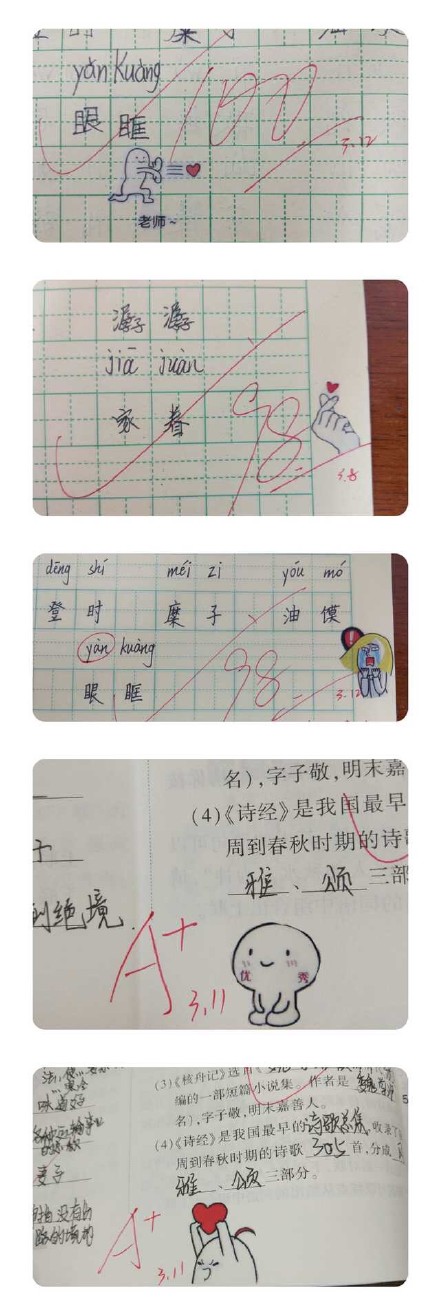 yǎn Kuàng
眼 眶
100
3.12
老师~
潺 潺
jiā juàn
家 眷
98
3.8
dēng shí méi zi yóu mó
登 时 糜 子 油 馍
yàn kuàng
眼 眶
98
3.12
名),字子敬,明末嘉
(4)《诗经》是我国最早
周到春秋时期的诗
雅、颂三部
绝境
A+
3.11
优秀
(3)《核舟记》选
编的一部短篇小说集。作者是魏
味道好
名),字子敬,明末嘉善人。
(4)《诗经》是我国最早的诗歌总集,收录了
周到春秋时期的诗歌305首,分成
麦子
雅、颂三部分。
A+
3.11